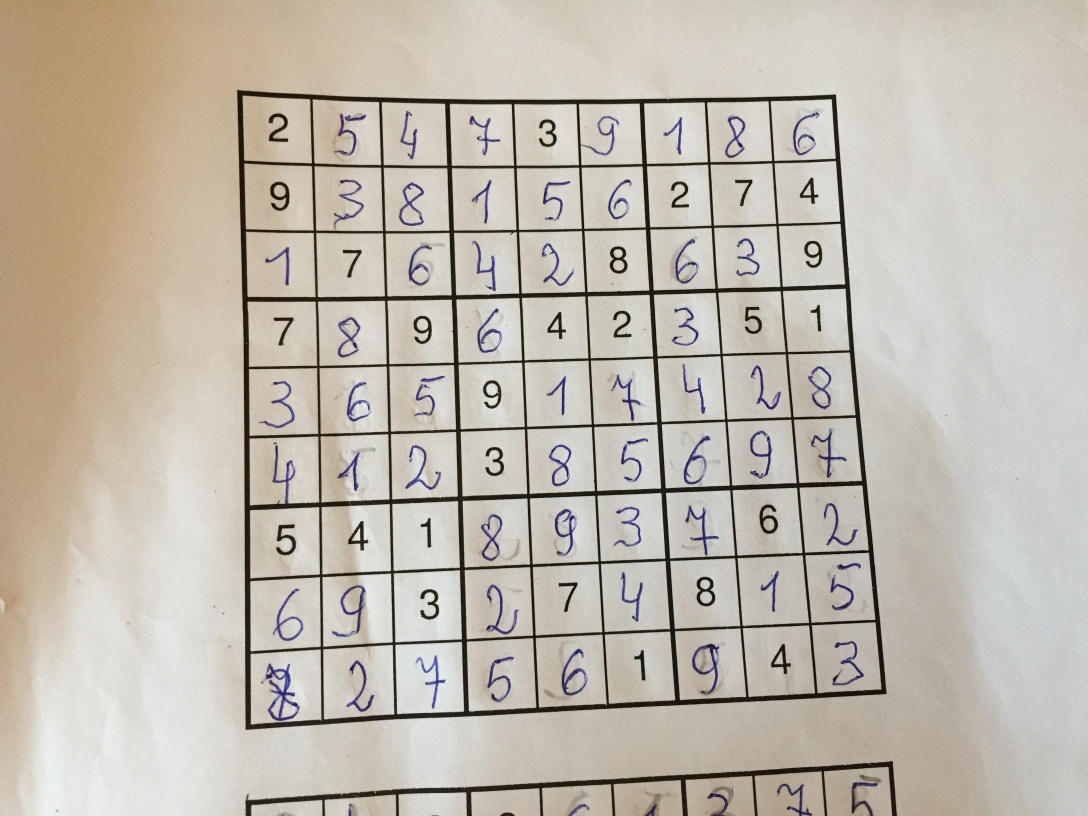 2 5 4 7 3 9 1 8 6
9 3 8 1 5 6 2 7 4
1 7 6 4 2 8 6 3 9
7 8 9 6 4 2 3 5 1
3 6 5 9 1 7 4 2 8
4 1 2 3 8 5 6 9 7
5 4 1 8 9 3 7 6 2
6 9 3 2 7 4 8 1 5
2 7 5 6 1 9 4 3
7 5